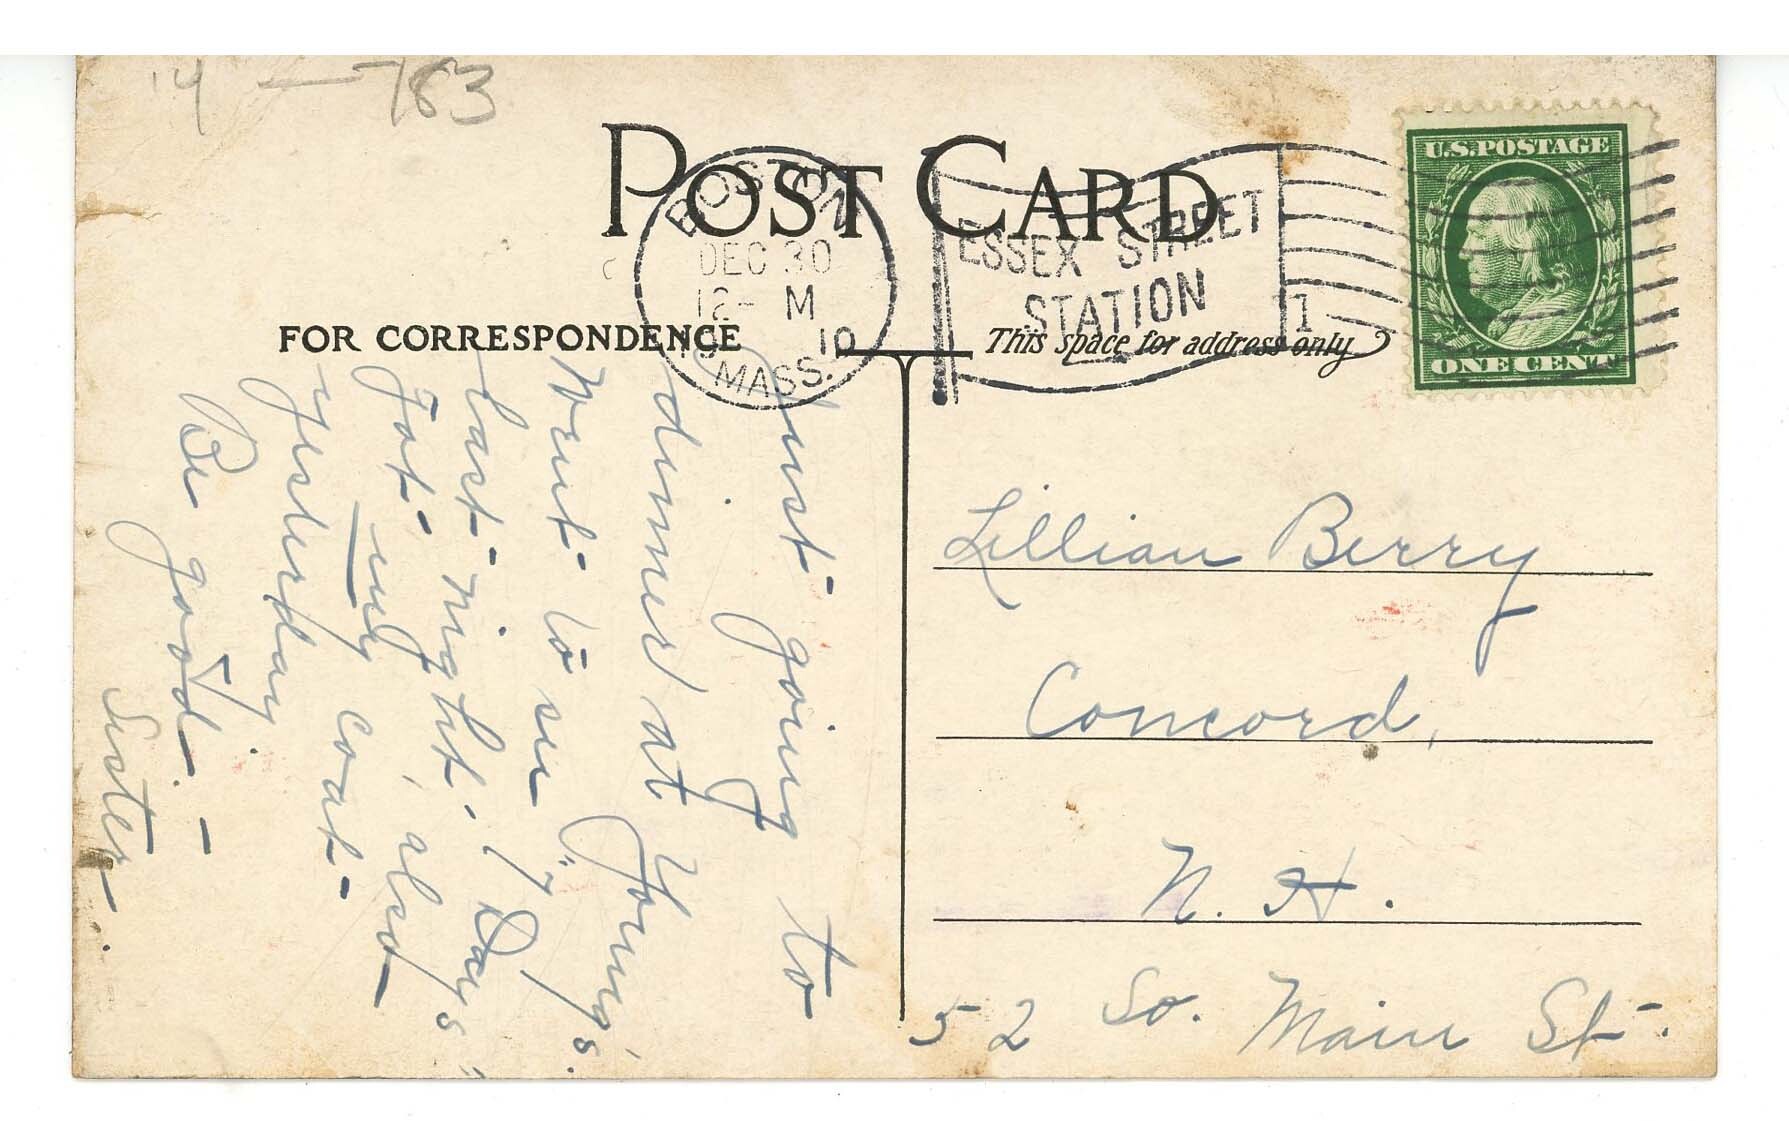 '14 — 783
POST CARD
BOSTON
DEC 30
12- M
10
MASS.
ESSEX STREET
STATION
1
U.S. POSTAGE
ONE CENT
FOR CORRESPONDENCE
This space for address only
Just going to
dinner at Young's.
Went to see "7 Days"
last night. 
Got my coat, also
yesterday.
Be good —
Sister.
Lillian Berry
Concord,
N. H.
52 So. Main St.